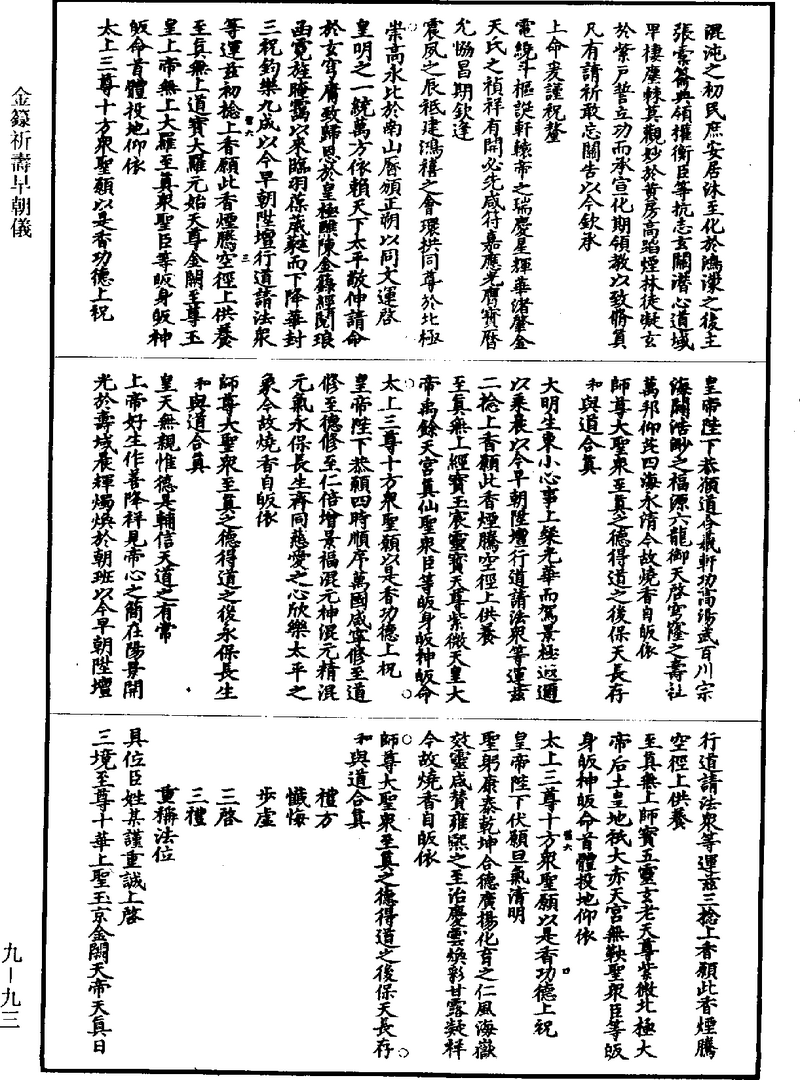 混沌之初民庶安居沐至化於鴻濛之後主
張雲篆典領權衡臣等抗志玄關潛心道域
早棲塵棘莫觀妙於黃房高蹈煙林徒凝玄
於紫戶誓立功而承宣化期領教以致脩員
凡有請祈敢忘關告以今欽承
上命爰謹祝釐
電繞斗樞誕軒轅帝之瑞慶星輝華渚肇金
天氏之禎祥有開必先咸符嘉應光膺寶曆
允協昌期欽逢
震夙之辰祗建鴻禧之會環拱同尊於北極
崇高永比於南山曆頒正朔以同文運啓
皇明之一統萬方依賴天下太平敬伸請命
於玄穹庸致歸恩於皇極醮陳金籙經閱琅
函霓旌晻靄以來臨羽葆葳蕤而下降華封
三祝鈞樂九成以今早朝陞壇行道請法衆
等運茲初捻上香願此香煙騰空徑上供養
至真無上道寶大羅元始天尊金闕至尊玉
皇上帝無上大羅至真衆聖臣等皈身皈神
皈命首體投地仰依
太上三尊十方衆聖願以是香功德上祝
皇帝陛下恭願道合羲軒功高湯武百川宗
海闢浩渺之福源六龍御天啓穹窿之壽社
萬邦仰芘四海永清今故燒香自皈依
師尊大聖衆至真之德得道之後保天長存
和與道合真
大明生東小心事上榮光華而駕景極遐邇
以秉晨以今早朝陞壇行道請法衆等運茲
二捻上香願此香煙騰空徑上供養
至真無上經寶玉宸靈寶天尊紫微天皇大
帝禹餘天宮真仙聖衆臣等皈身皈神皈命
太上三尊十方衆聖願以是香功德上祝
皇帝陛下恭願四時順序萬國咸寧修至道
修至德修至仁倍增景福混元神混元精混
元氣永保長生齊同慈愛之心欣樂太平之
象今故燒香自皈依
師尊大聖衆至真之德得道之後永保長生
和與道合真
皇天無親惟德是輔信天道之有常
上帝好生作善降祥見帝心之簡在陽景開
光於壽域晨輝燭煥於朝班以今早朝陞壇
行道請法衆等運茲三捻上香願此香煙騰
空徑上供養
至真無上師寶五靈玄老天尊紫微北極大
帝后土皇地祇大赤天宮無鞅聖衆臣等皈
身皈神皈命首體投地仰依
太上三尊十方衆聖願以是香功德上祝
皇帝陛下伏願旦氣清明
聖躬康泰乾坤合德廣揚化育之仁風海嶽
效靈咸贊雍熙之至治慶雲煥彩甘露凝祥
今故燒香自皈依
師尊大聖衆至真之德得道之後保天長存
和與道合真
禮方
懺悔
步虛
三啓
三禮
重稱法位
具位臣姓某謹重誠上啓
三境至尊十華上聖玉京金闕天帝天真日
金籙祈壽早朝儀
九－九三